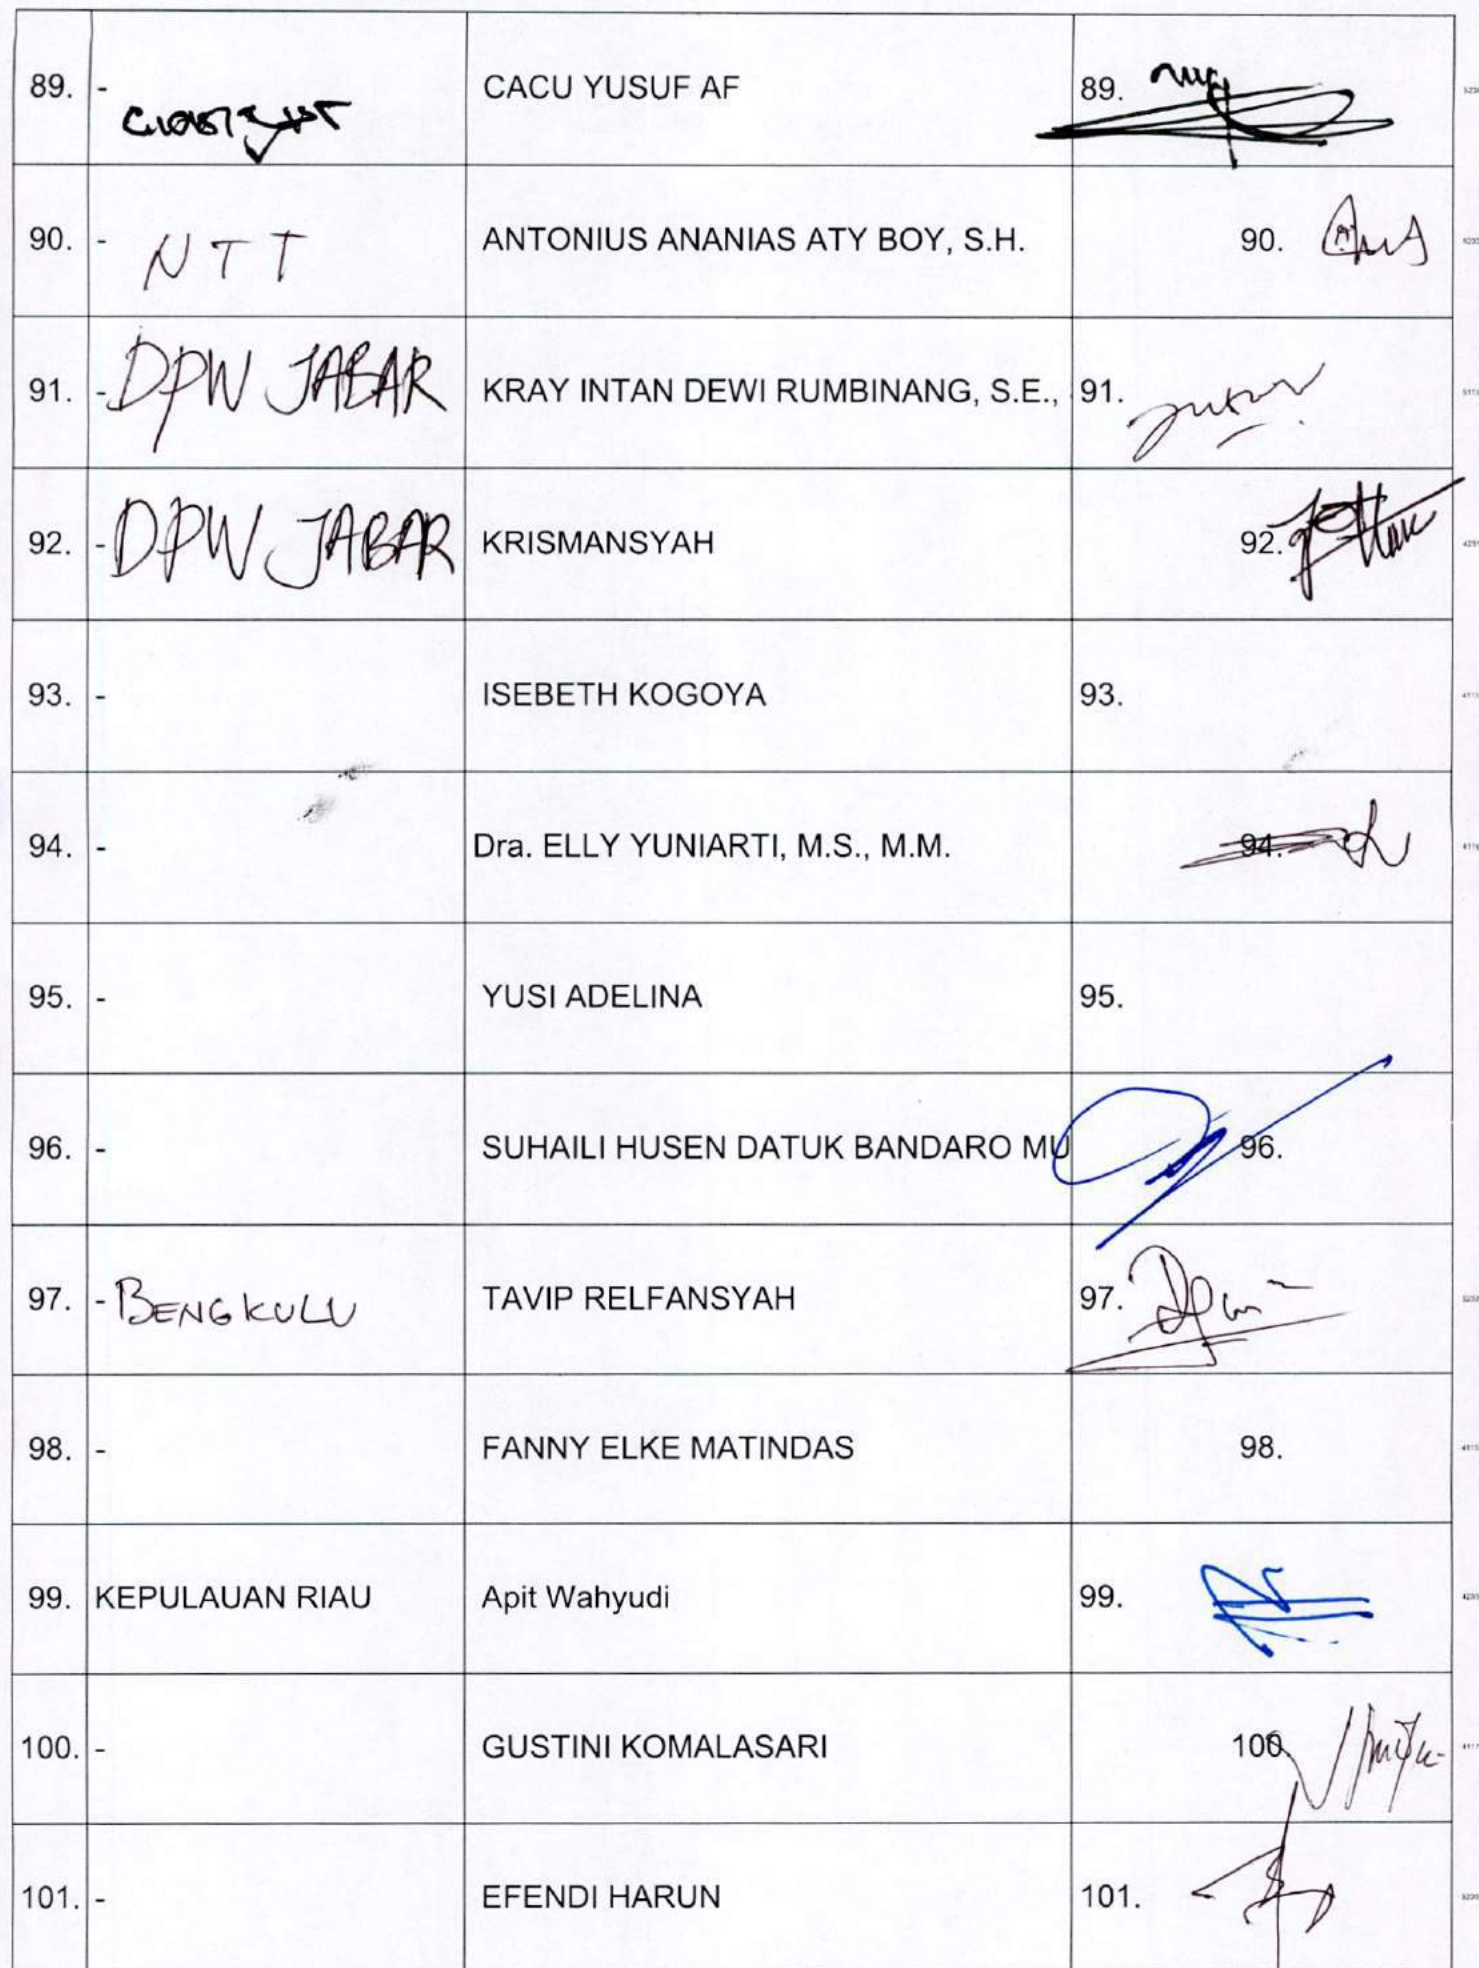 89. - CACU YUSUF AF 89.
90. - NTT ANTONIUS ANANIAS ATY BOY, S.H. 90.
91. - DPW JABAR KRAY INTAN DEWI RUMBINANG, S.E., 91.
92. - DPW JABAR KRISMANSYAH 92.
93. - ISEBETH KOGOYA 93.
94. - Dra. ELLY YUNIARTI, M.S., M.M. 94.
95. - YUSI ADELINA 95.
96. - SUHAILI HUSEN DATUK BANDARO MU 96.
97. - BENGKULU TAVIP RELFANSYAH 97.
98. - FANNY ELKE MATINDAS 98.
99. KEPULAUAN RIAU Apit Wahyudi 99.
100. - GUSTINI KOMALASARI 100.
101. - EFENDI HARUN 101.